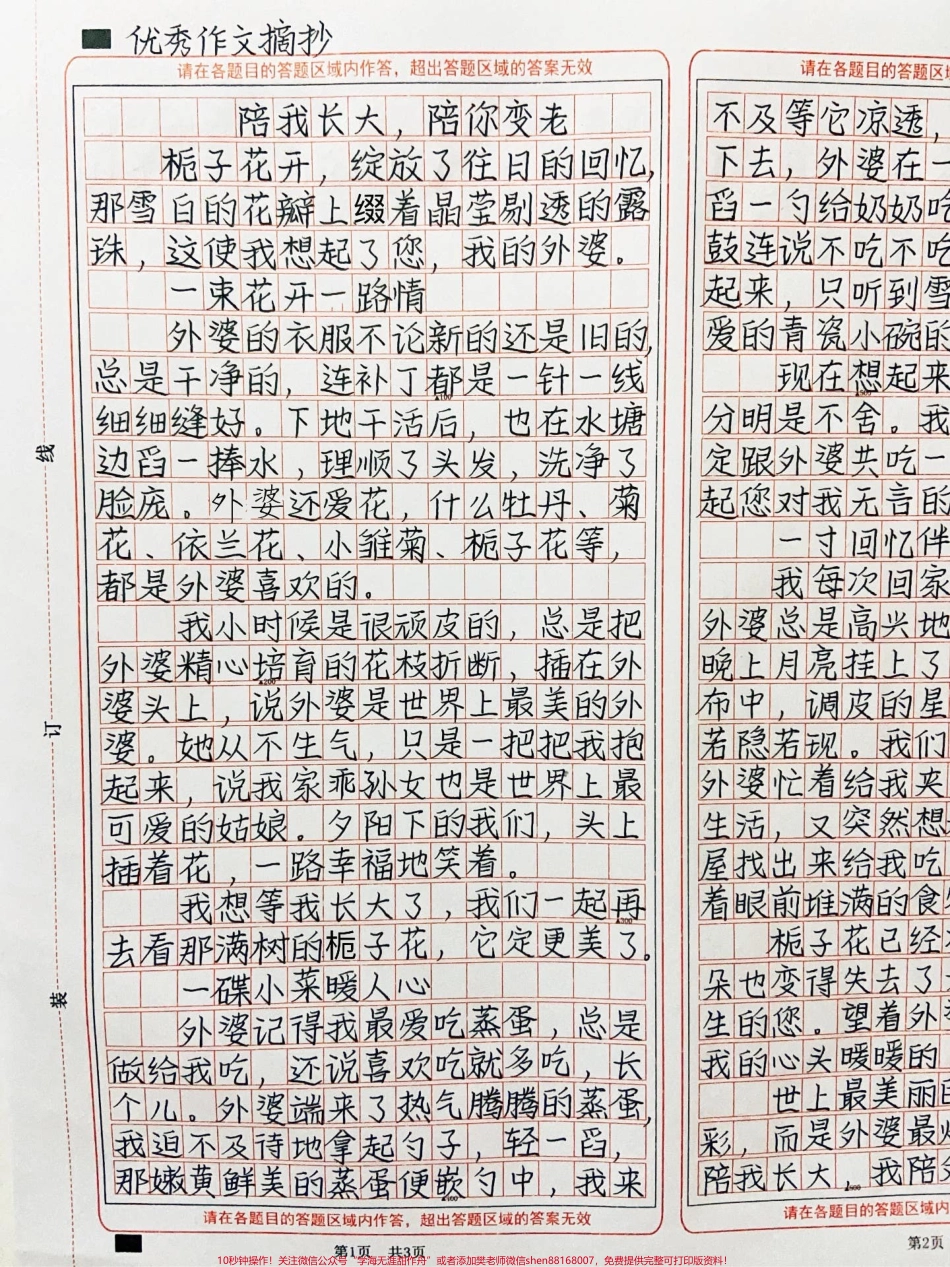 优秀作文摘抄
请在各题目的答题区域内作答，超出答题区域的答案无效
陪我长大，陪你变老
栀子花开，绽放了往日的回忆，
那雪白的花瓣上缀着晶莹剔透的露
珠，这使我想起了您，我的外婆。
一束花开一路情
外婆的衣服不论新的还是旧的，
总是干净的，连补丁都是一针一线
细细缝好。下地干活后，也在水塘
边舀一捧水，理顺了头发，洗净了
脸庞。外婆还爱花，什么牡丹、菊
花、依兰花、小雏菊、栀子花等，
都是外婆喜欢的。
我小时候是很顽皮的，总是把
外婆精心培育的花枝折断，插在外
婆头上，说外婆是世界上最美的外
婆。她从不生气，只是一把把我抱
起来，说我家乖孙女也是世界上最
可爱的姑娘。夕阳下的我们，头上
插着花，一路幸福地笑着。
我想等我长大了，我们一起再
去看那满树的栀子花，它定更美了。
一碟小菜暖人心
外婆记得我最爱吃蒸蛋，总是
做给我吃，还说喜欢吃就多吃，长
个儿。外婆端来了热气腾腾的蒸蛋，
我迫不及待地拿起勺子，轻一舀，
那嫩黄鲜美的蒸蛋便嵌勺中，我来
请在各题目的答题区域内作答，超出答题区域的答案无效
第1页 共3页
线
订
装
请在各题目的答题区域
不及等它凉透，
下去，外婆在一
舀一勺给奶奶吃
鼓连说不吃不吃
起来，只听到雪
爱的青瓷小碗的
现在想起来
分明是不舍。我
定跟外婆共吃一
起您对我无言的
一寸回忆伴
我每次回家
外婆总是高兴地
晚上月亮挂上了
布中，调皮的星
若隐若现。我们
外婆忙着给我夹
生活，又突然想
屋找出来给我吃
着眼前堆满的食
栀子花已经
朵也变得失去了
生的您。望着外
我的心头暖暖的
世上最美丽
彩，而是外婆最
陪我长大，我陪
请在各题目的答题区域内
第2页
10秒钟操作！关注微信公众号“学海无涯甜作舟”或者添加樊老师微信shen88168007，免费提供完整可打印版资料！